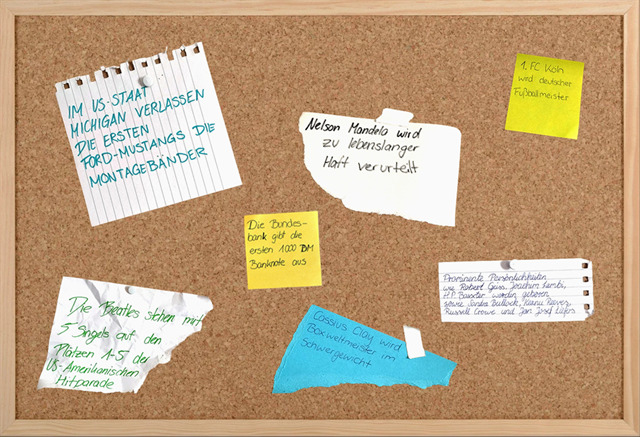 IM US-STAAT
MICHIGAN VERLASSEN
DIE ERSTEN
FORD-MUSTANGS DIE
MONTAGEBÄNDER
1. FC Köln
wird deutscher
Fußballmeister
Nelson Mandela wird
zu lebenslanger
Haft verurteilt
Die Bundes-
bank gibt die
ersten 1000 DM
Banknote aus
Prominente Persönlichkeiten
wie Robert Geiss, Joachim Llambi,
H.P. Baxxter werden geboren
sowie Sandra Bullock, Keanu Reeves,
Russell Crowe und Jan Josef Liefers
Die Beatles stehen mit
5 Singels auf den
Plätzen 1-5 der
US-Amerikanischen
Hitparade
Cassius Clay wird
Boxweltmeister im
Schwergewicht